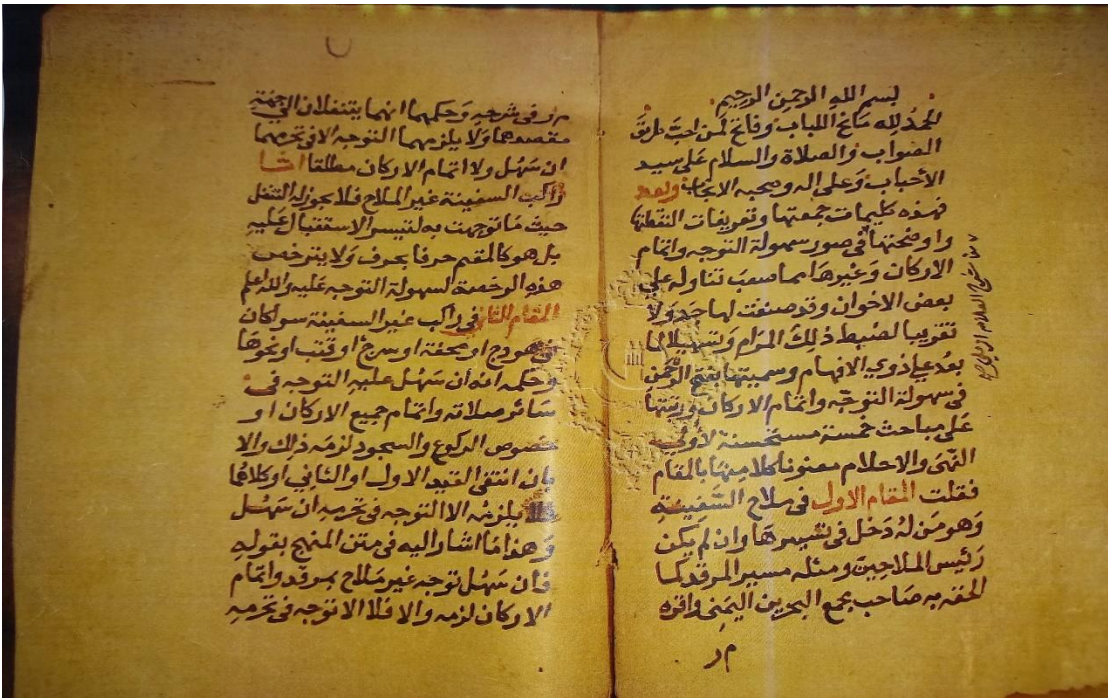 بسم الله الرحمن الرحيم
الحمد لله مانح اللباب وفاتح لمن احب طريق
الصواب والصلاة والسلام على سيد
الأحباب وعلى اله وصحبه الانجاب وبعد
فهذه كليمات جمعتها وتعريفات التقطتها
واوضحتها فى صور سهولة التوجه واتمام
الاركان وغيرها مما صعب تناوله على
بعض الاخوان وقد صنعت لها جدولا
تقريبا لضبط ذلك المرام وتسهيلا لما
بعد على ذوي الافهام وسميتها بفتح الرحمن
فى سهولة التوجه واتمام الاركان ورتبتها
على مباحث خمسة مستحسنة لاولى
النهى والاحلام معنونا كلا منها بالمقام
فقلت المقام الاول فى ملاح السفينة
وهو من له دخل فى تسييرها وان لم يكن
رئيس الملاحين ومثله مسير المرقد كما
الحقه به صاحب مجمع البحرين اليمنى واقره
م ر
م ر فى شرحه وحكمهما انهما يتنفلان الى جهة
مقصدهما ولا يلزمهما التوجه الا فى تحرمهما
ان سهل ولا اتمام الاركان مطلقا اما
راكب السفينة غير الملاح فلا يجوز له التنفل
حيث ما توجهت به لتيسر الاستقبال عليه
بل هو كالمقيم حرفا بحرف ولا يترخص
هذه الرخصة لسهولة التوجه عليه والله اعلم
المقام الثانى فى راكب غير السفينة سوا كان
فى هودج او محفة او سرج او قتب او نحوها
وحكمه انه ان سهل عليه التوجه فى
سائر صلاته واتمام جميع الاركان او
خصوص الركوع والسجود لزمه ذلك والا
بان انتفى القيد الاول او الثاني او كلاهما
فلا يلزمه الا التوجه فى تحرمه ان سهل
وهذا ما اشار اليه فى متن المنهج بقوله
فان سهل توجه غير ملاح بمرقد واتمام
الاركان لزمه والا فلا الا توجه فى تحرمه